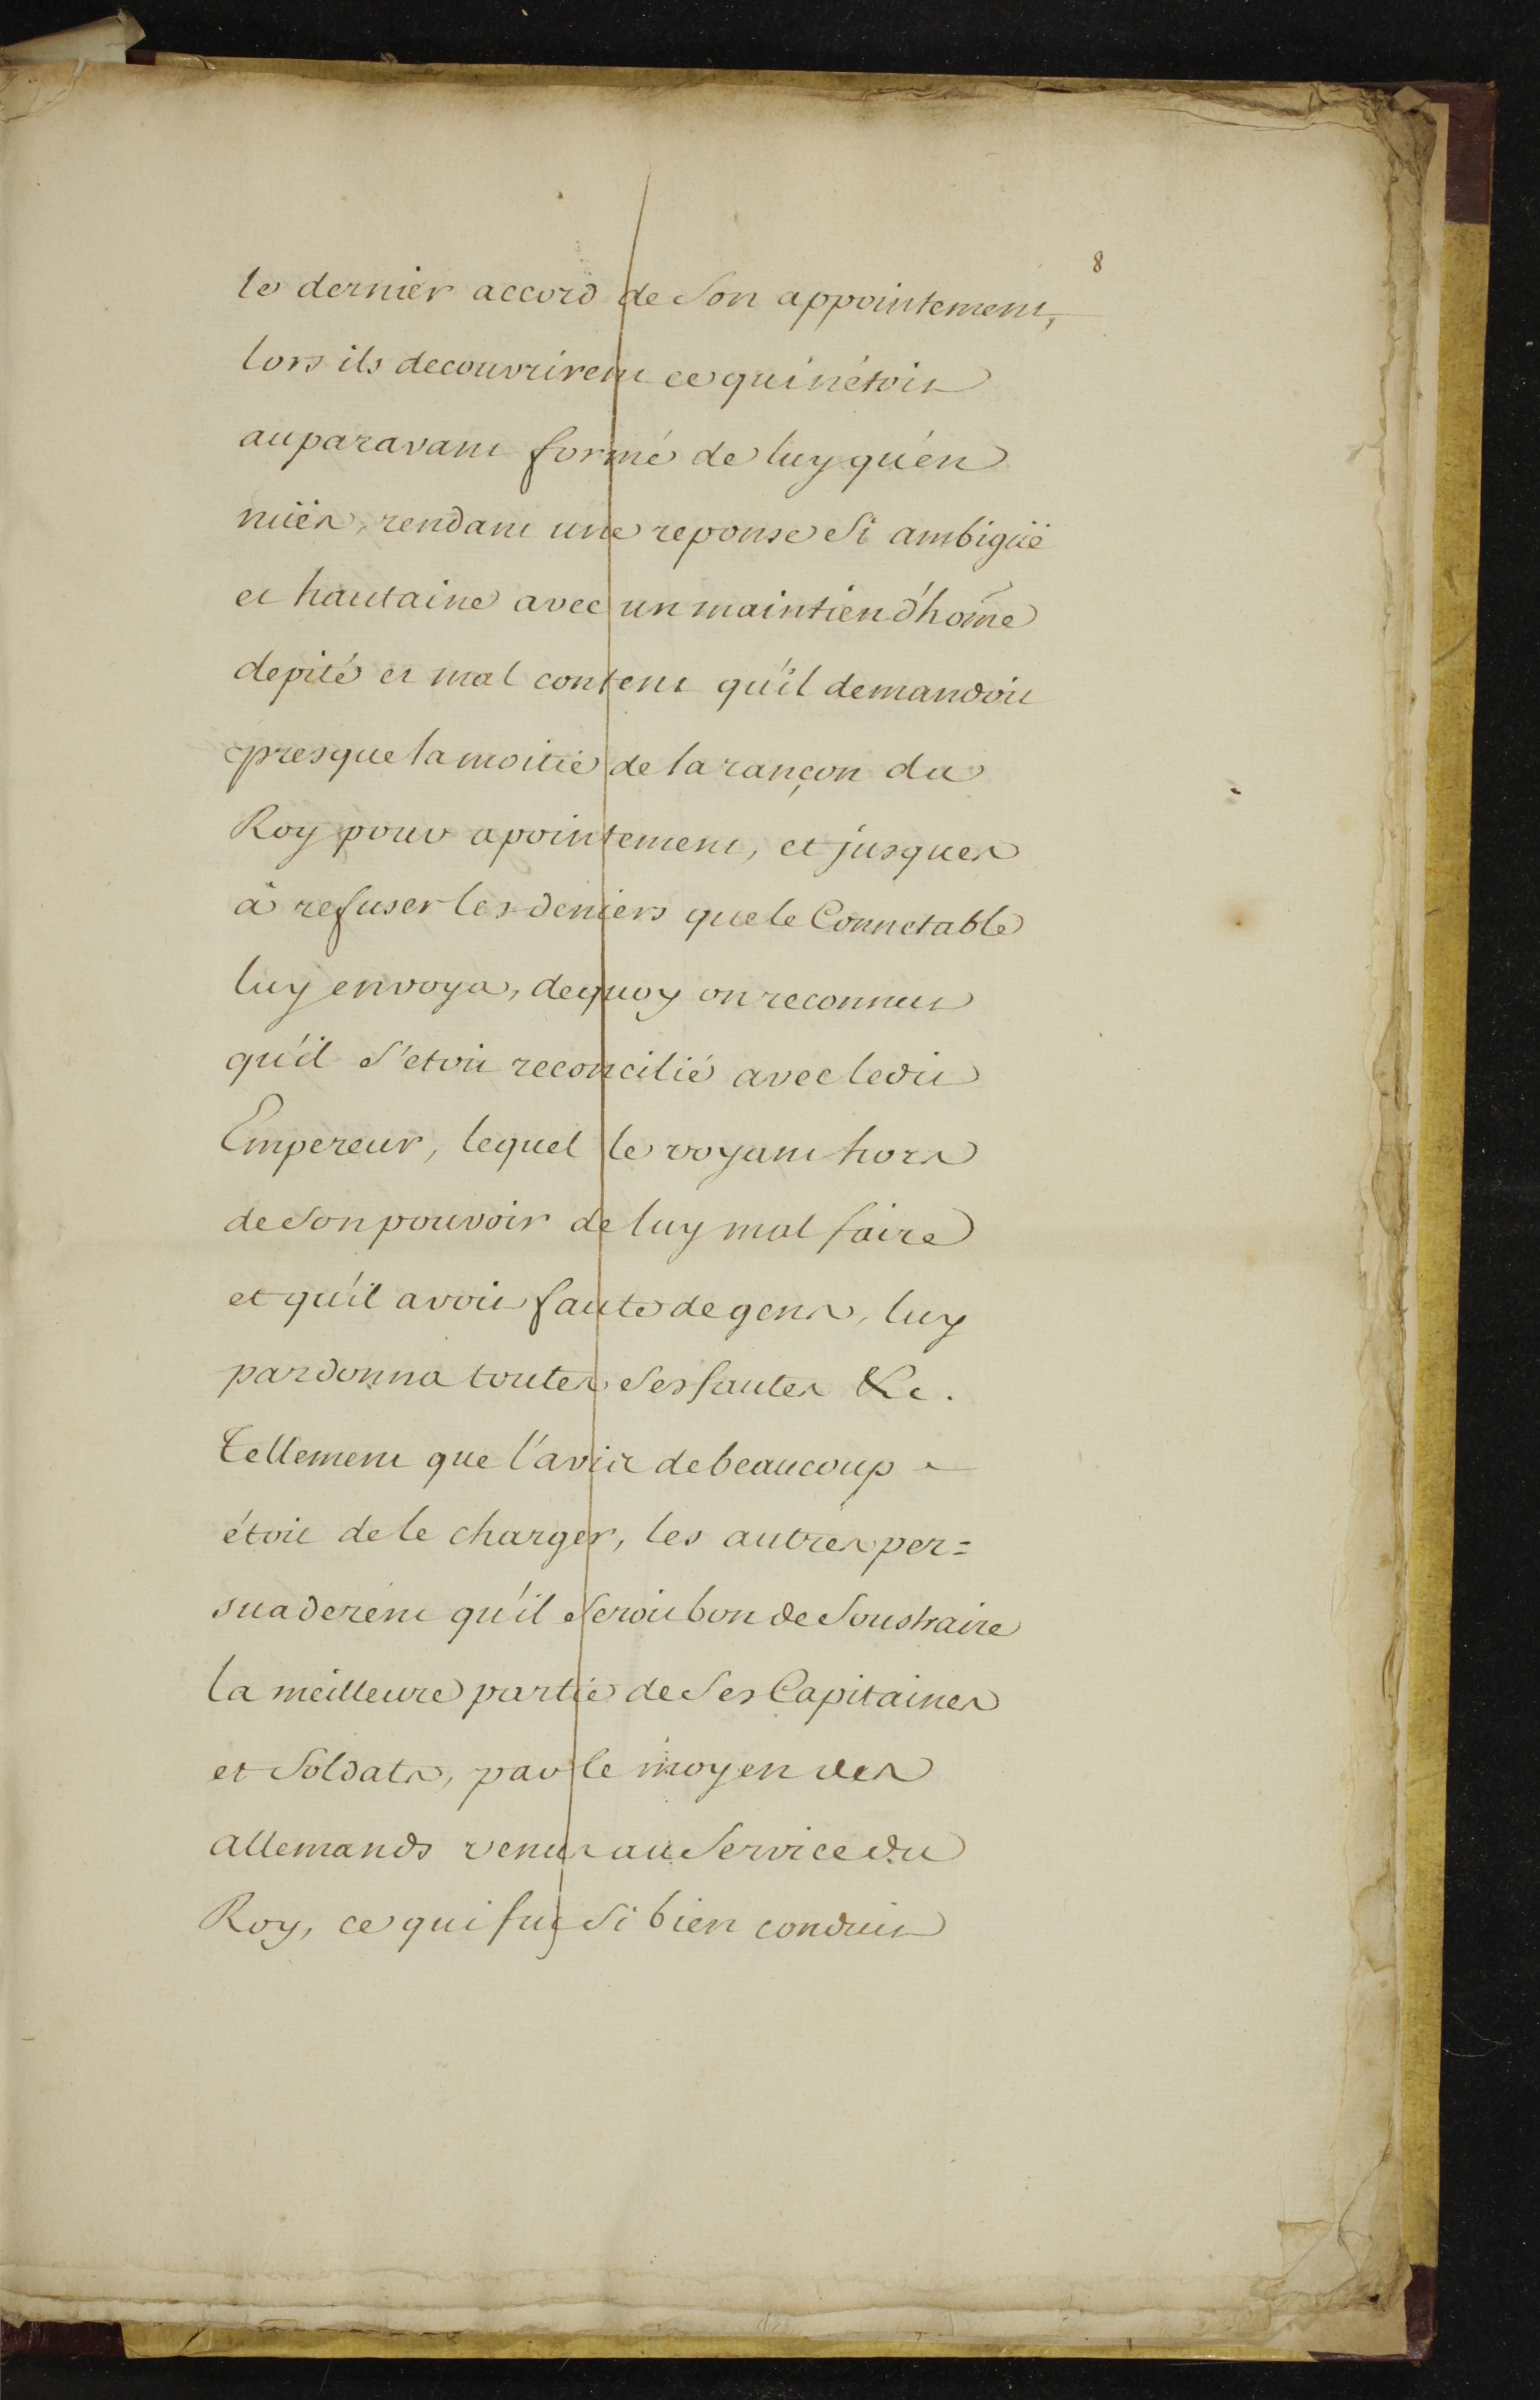 8
le dernier accord de son appointement,
lors ils decouvrirent ce qui n'étoit
auparavant formé de luy qu'en
nüës, rendant une reponse si ambigüe
et hautaine avec un maintien d'hom̃e
depité et mal content qu'il demandoit
presque la moitié de la rançon du
Roy pour apointement, et jusques
à refuser les deniers que le Connetable
luy envoya, dequoy on reconnut
qu'il s'etoit reconcilié avec ledit
Empereur, lequel le voyant hors
de son pouvoir de luy mal faire
et qu'il avoit faute de gens, luy
pardonna toutes ses fautes &c.
Tellement que l'avis de beaucoup
étoit de le charger, les autres per=
suaderent qu'il seroit bon de soustraire
la meilleure partie de ses Capitaines
et soldats, par le moyen des
allemands venus au service du
Roy, ce qui fut si bien conduit